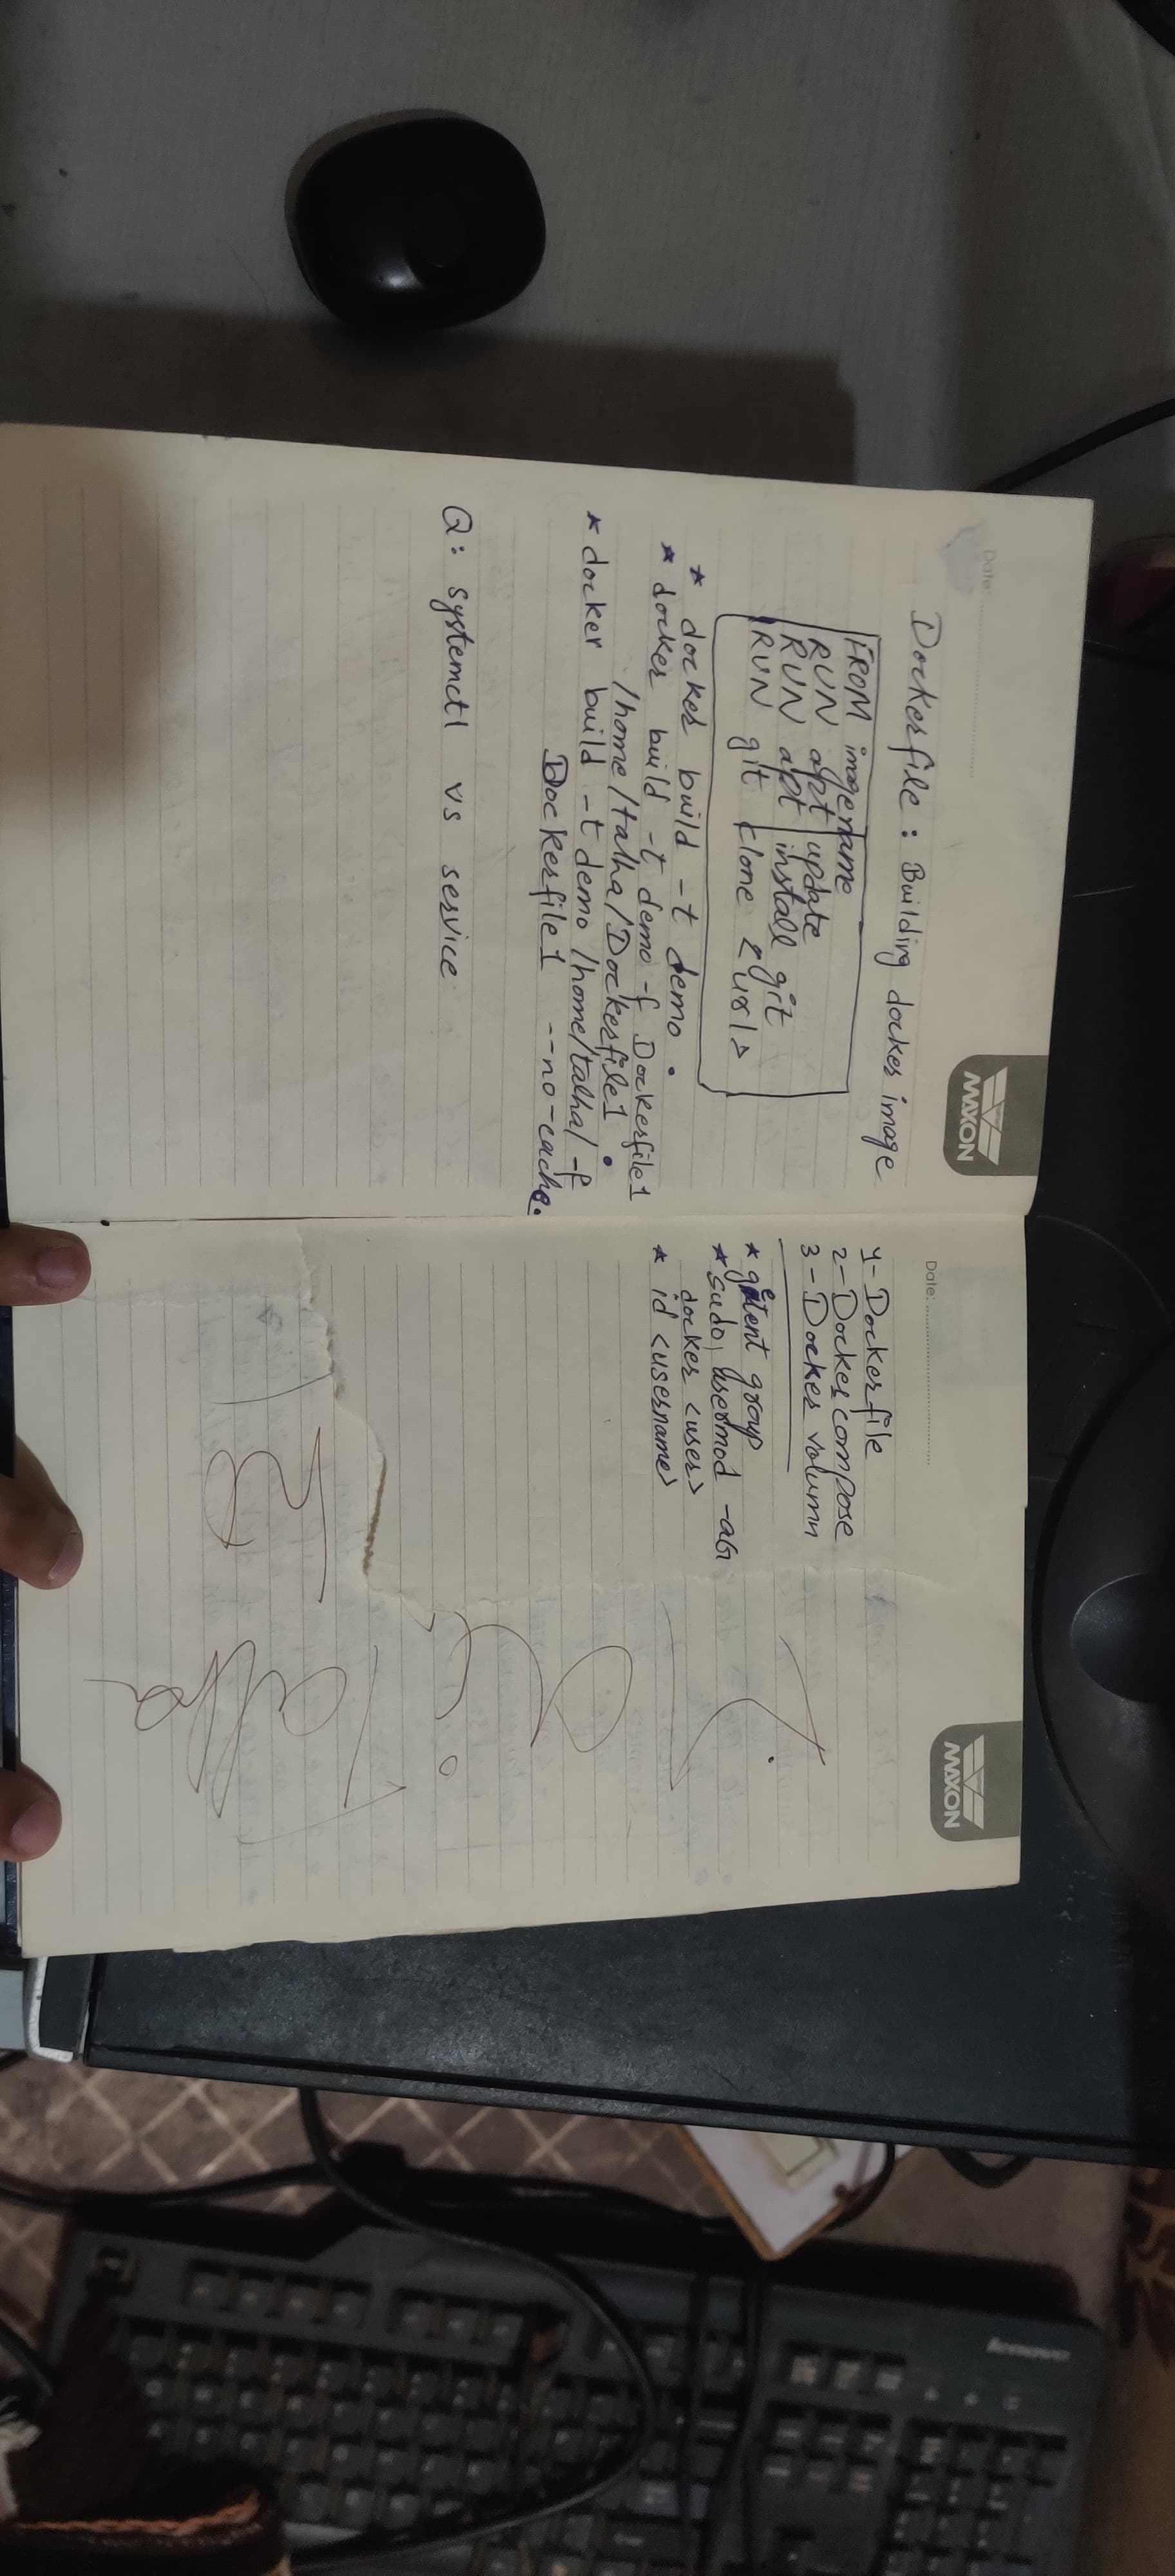 Date:
MAXON
Dockerfile : Building docker image
FROM imagename
RUN apt update
RUN apt install git
RUN git clone <url>
* docker build -t demo .
* docker build -t demo -f Dockerfile1
/home/talha/Dockerfile1 .
* docker build -t demo /home/talha/ -f
Dockerfile1 --no-cache.
Q: systemctl vs service
Date:
MAXON
1- Dockerfile
2- Docker compose
3- Docker volumn
* getent group
* sudo usermod -aG
docker <user>
* id <username>
lenovo